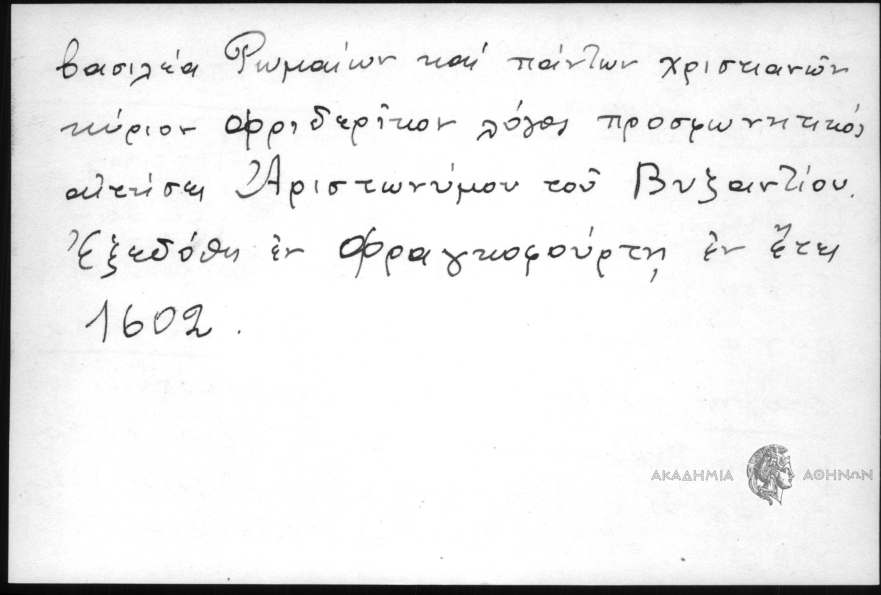 βασιλέα Ῥωμαίων καί πάντων χριστιανῶν
κύριον Φριδερῖκον λόγος προσφωνητικός
αἰτήσει Ἀριστωνύμου τοῦ Βυζαντίου.
Ἐξεδόθη ἐν Φραγκοφούρτῃ ἐν ἔτει
1602.
ΑΚΑΔΗΜΙΑ ΑΘΗΝΩΝ